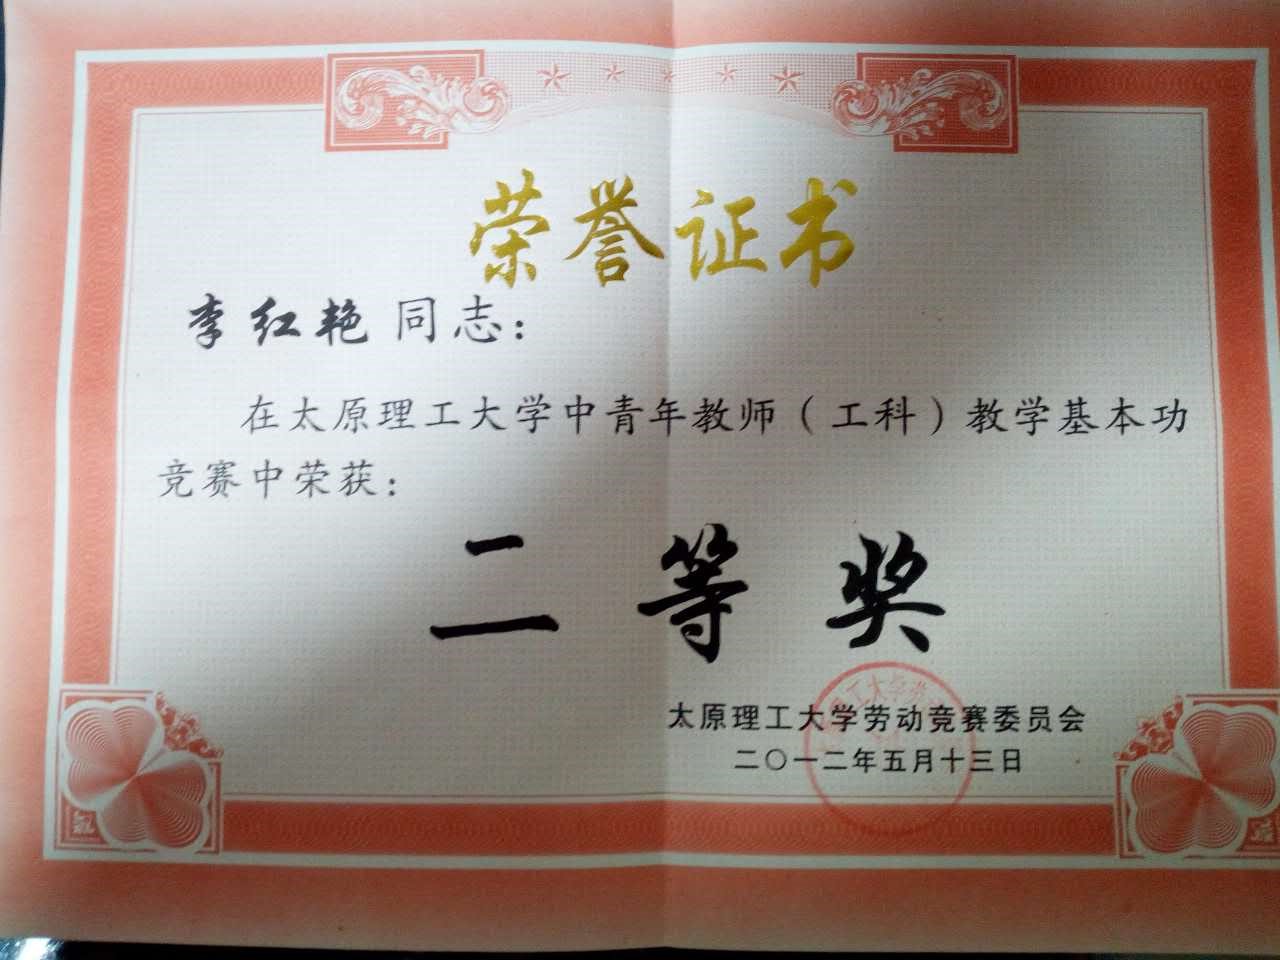 荣誉证书
李红艳 同志：
在太原理工大学中青年教师（工科）教学基本功
竞赛中荣获：
二等奖
工大学劳
太原理工大学劳动竞赛委员会
二〇一二年五月十三日